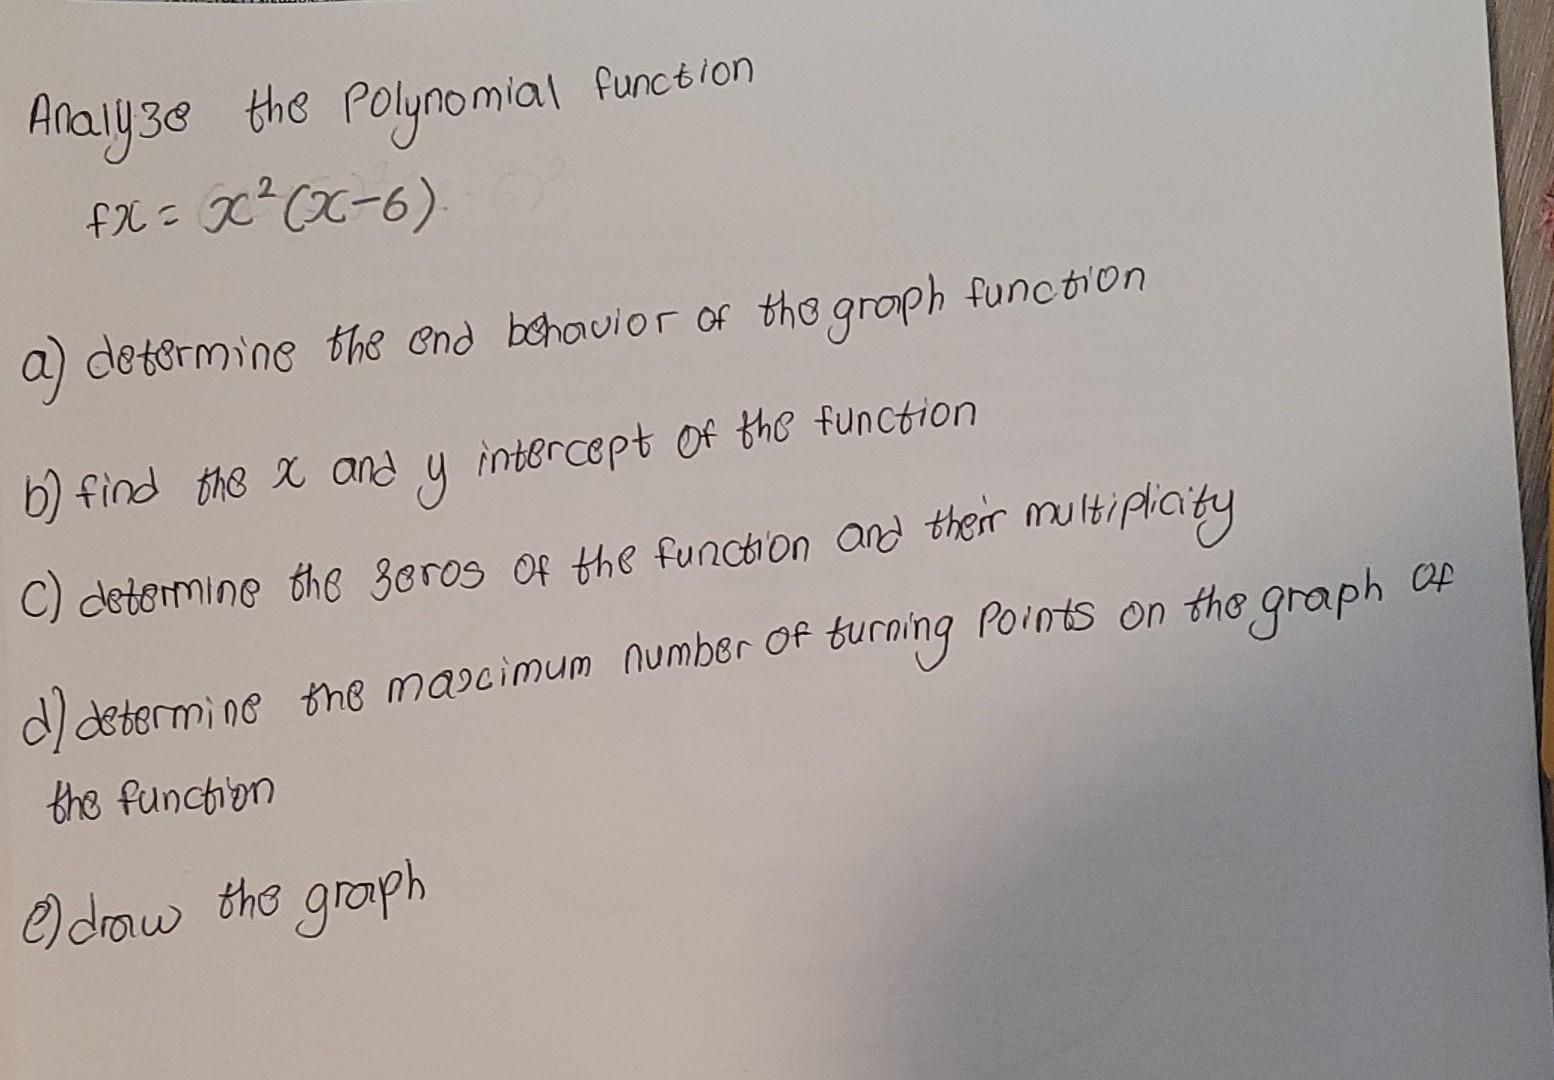 Analyze the Polynomial function
fx = x²(x-6)
a) determine the end behavior of the graph function
b) find the x and y intercept of the function
c) determine the zeros of the function and their multiplicity
d) determine the maximum number of turning points on the graph of
the function
e) draw the graph